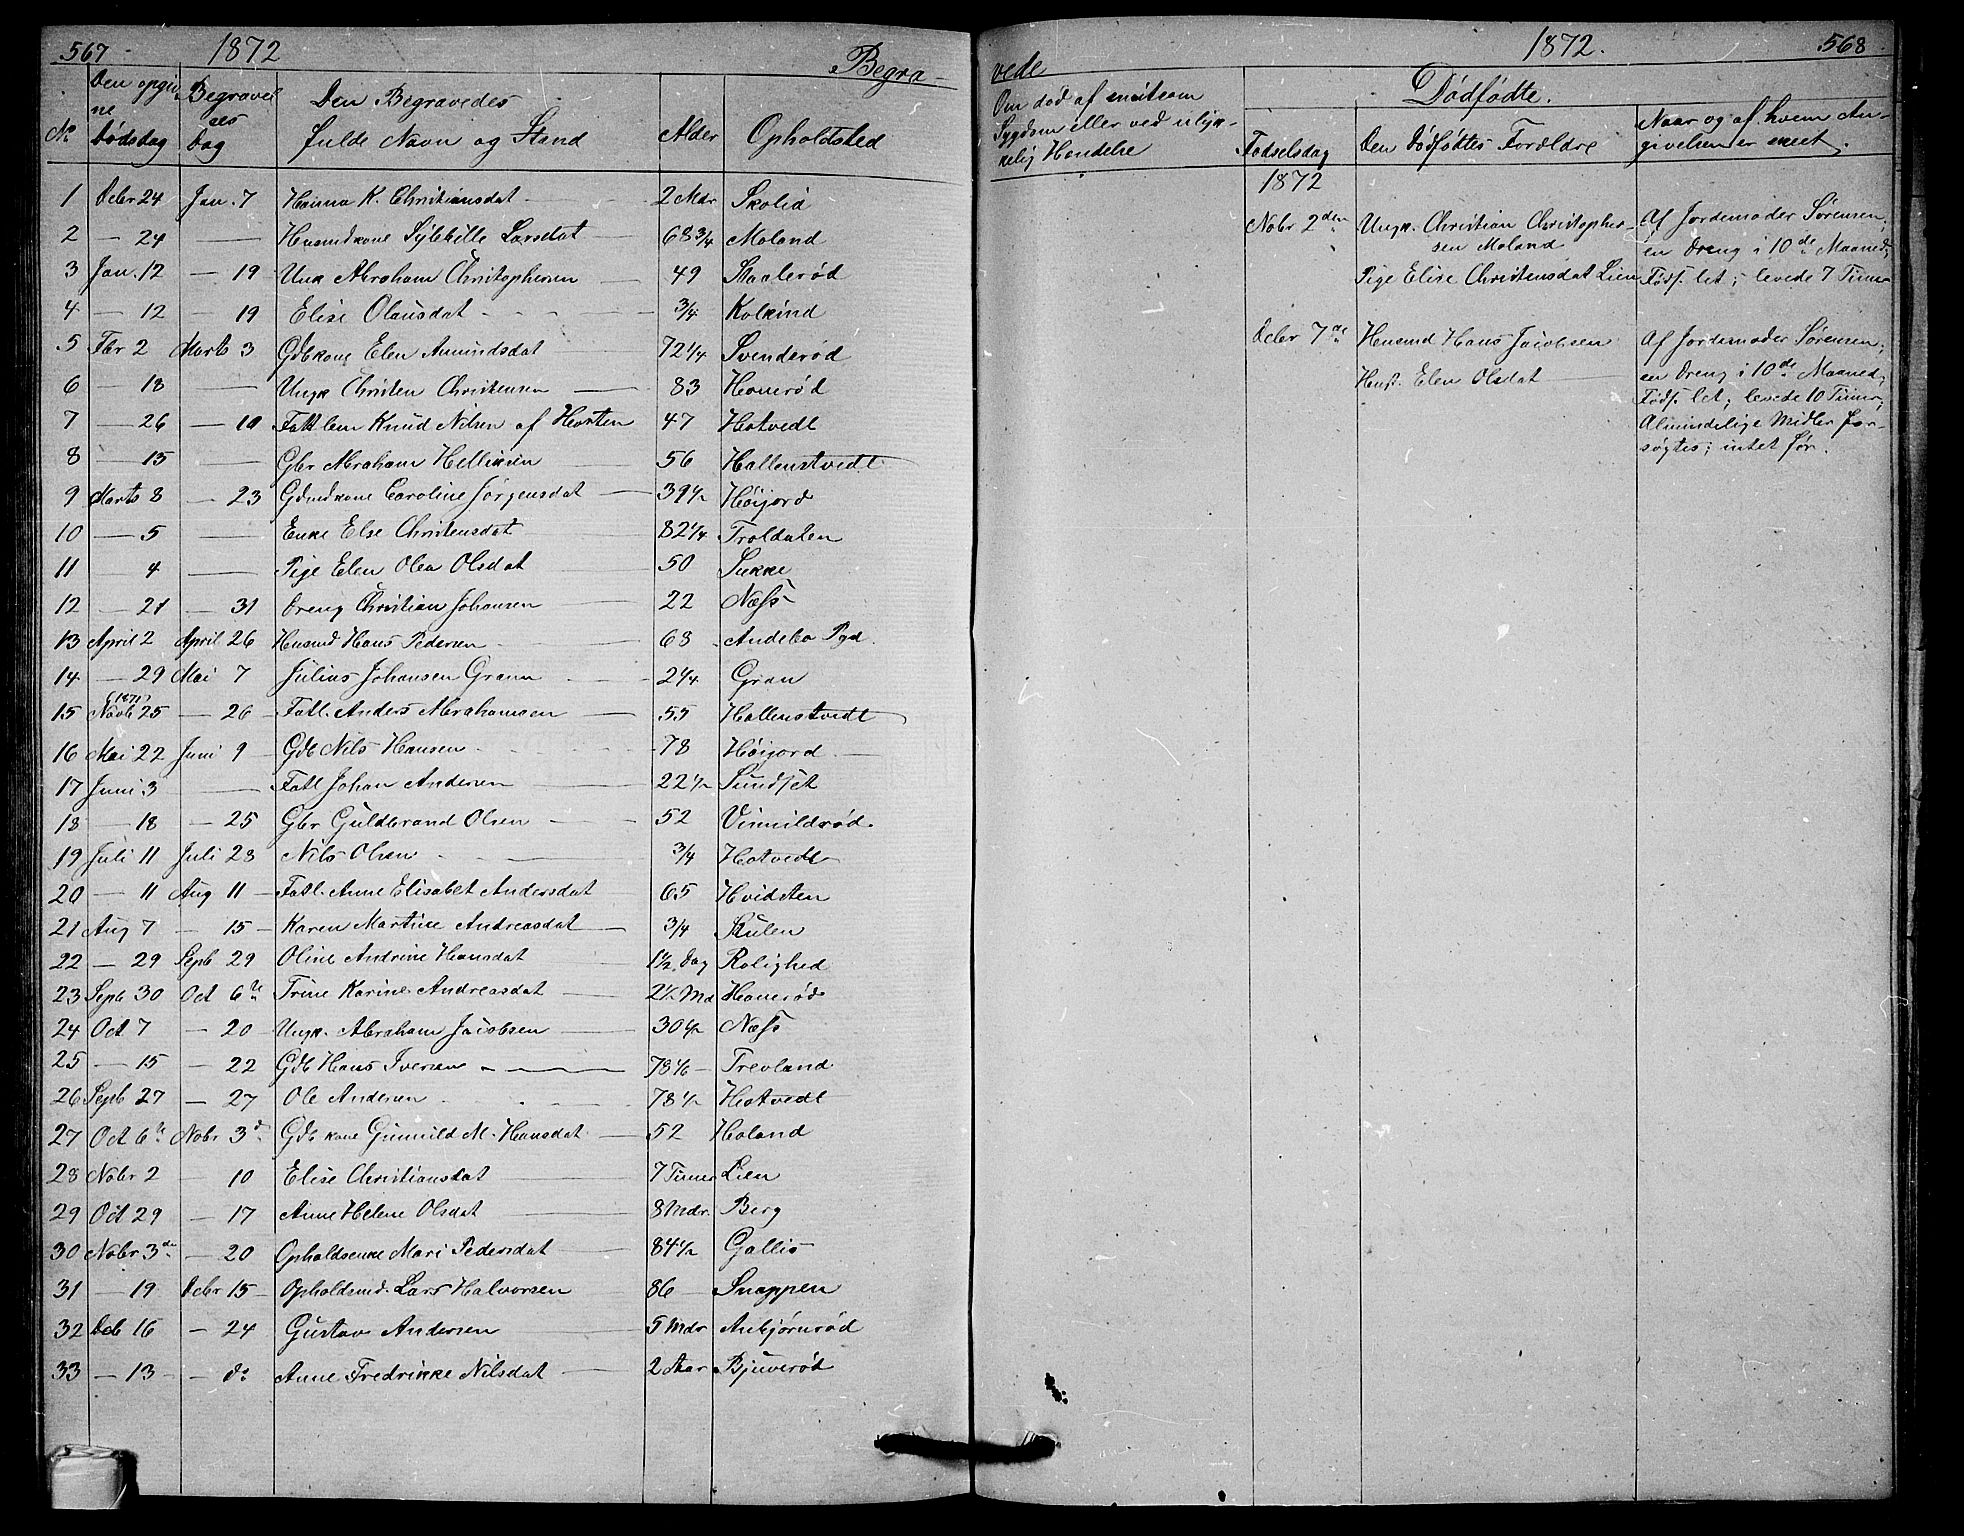 567 1872 Begra-
Den opgiv
ne
Dødsdag
Begravel
ses
Dag
Den Begravedes
fulde Navn og Stand
No
Alder Opholdsted
1 Debr 24 Jan. 7 Hanna K. Christiansdat 2 Mdr Skolid
2 — 24 — Husmdkone Sylebille Larsdat 68 3/4 Moland
3 Jan. 12 — 19 Unk Abraham Christophersen 49 Staalerød
4 — 12 — 19 Elise Olausdat 3/4 Kolkind
5 Fbr 2 Marts 3 Gdbkone Elen Amundsdat 72 1/4 Svenderød
6 — 18 — Ungk Christen Christensen 83 Honerød
7 — 26 — 10 Fattlem Knud Nilsen af Horten 47 Hotvedt
8 — 15 — Gbr Abraham Helliksen 56 Hallenstvedt
9 Marts 8 — 23 Gdmdkone Caroline Jørgensdat 39 1/2 Høijord
10 — 5 — Enke Else Christensdat 82 1/4 Troldalen
11 — 4 — Pige Elen Olea Olsdat 50 Sukke
12 — 21 — 31 Dreng Christian Johansen 22 Næss
13 April 2 April 26 Husmd Hans Pedersen 63 Andebo Pgd.
14 — 29 Mai 7 Julius Johansen Gran 2 1/4 Gran
(1871)
15 Novb 25 — 26 Fatl. Anders Abrahamsen 55 Hallenstvedt
16 Mai 22 Juni 9 Gdb Nils Hansen 78 Høijord
17 Juni 3 — Fatl Johan Andersen 22 1/2 Sundset
18 — 18 — 25 Gbr Guldbrand Olsen 52 Vimildrød
19 Juli 11 Juli 23 Nils Olsen 3/4 Hotvedt
20 — 11 Aug 11 Fatl. Anne Elisabet Andersdat 65 Hvidsten
21 Aug 7 — 15 Karen Martine Andreasdat 3/4 Skulen
22 — 29 Sepb 29 Oline Andrine Hansdat 1 1/2 Dag Rolighed
23 Sepb 30 Oct 6te Trine Karine Andreasdat 2 1/2 Md Honerød
24 Oct 7 — 20 Ungk. Abraham Jacobsen 30 1/2 Næss
25 — 15 — 22 Gdb Hans Iversen 78 1/2 Trevland
26 Sepb 27 — 27 Ole Andersen 78 1/2 Hotvedt
27 Oct 6te Nobr 3d Gdb kone Gunnild M. Hansdat 52 Holand
28 Nobr 2 — 10 Elise Christiansdat 7 Timer Lien
29 Oct 29 — 17 Anne Helene Olsdat 8 Mdr. Berg
30 Nobr 3de — 20 Opholdsenke Mari Pedersdat 84 1/2 Gallis
31 — 19 Debr 15 Opholdsmd. Lars Halvorsen 86 Snappen
32 Deb 16 — 24 Gustav Andersen 5 Mdr Anbjørnrød
33 — 13 — do Anne Fredrikke Nilsdat 2 Aar Bjuverød
vede 1872. 568
Om død af smitsom
Sygdom eller ved ulyk-
kelig Hændelse
Dødfødte.
Fødselsdag Den Dødfødtes Forældre
Naar og af hvem An-
givelsen er skeet.
1872
Nobr 2den Ungk. Christian Christopher-
sen Moland
Pige Elise Christensdat Lien
Af Jordemoder Sørensen;
en Dreng i 10de Maaned;
Føds. let; levede 7 Timer
Debr 7de Husmd Hans Jacobsen
Hust. Elen Olsdat
Af Jordemoder Sørensen;
en Dreng i 10de Maaned;
Føds. let; levede 10 Timer;
Almindelige Midler for-
søgtes; intet før.